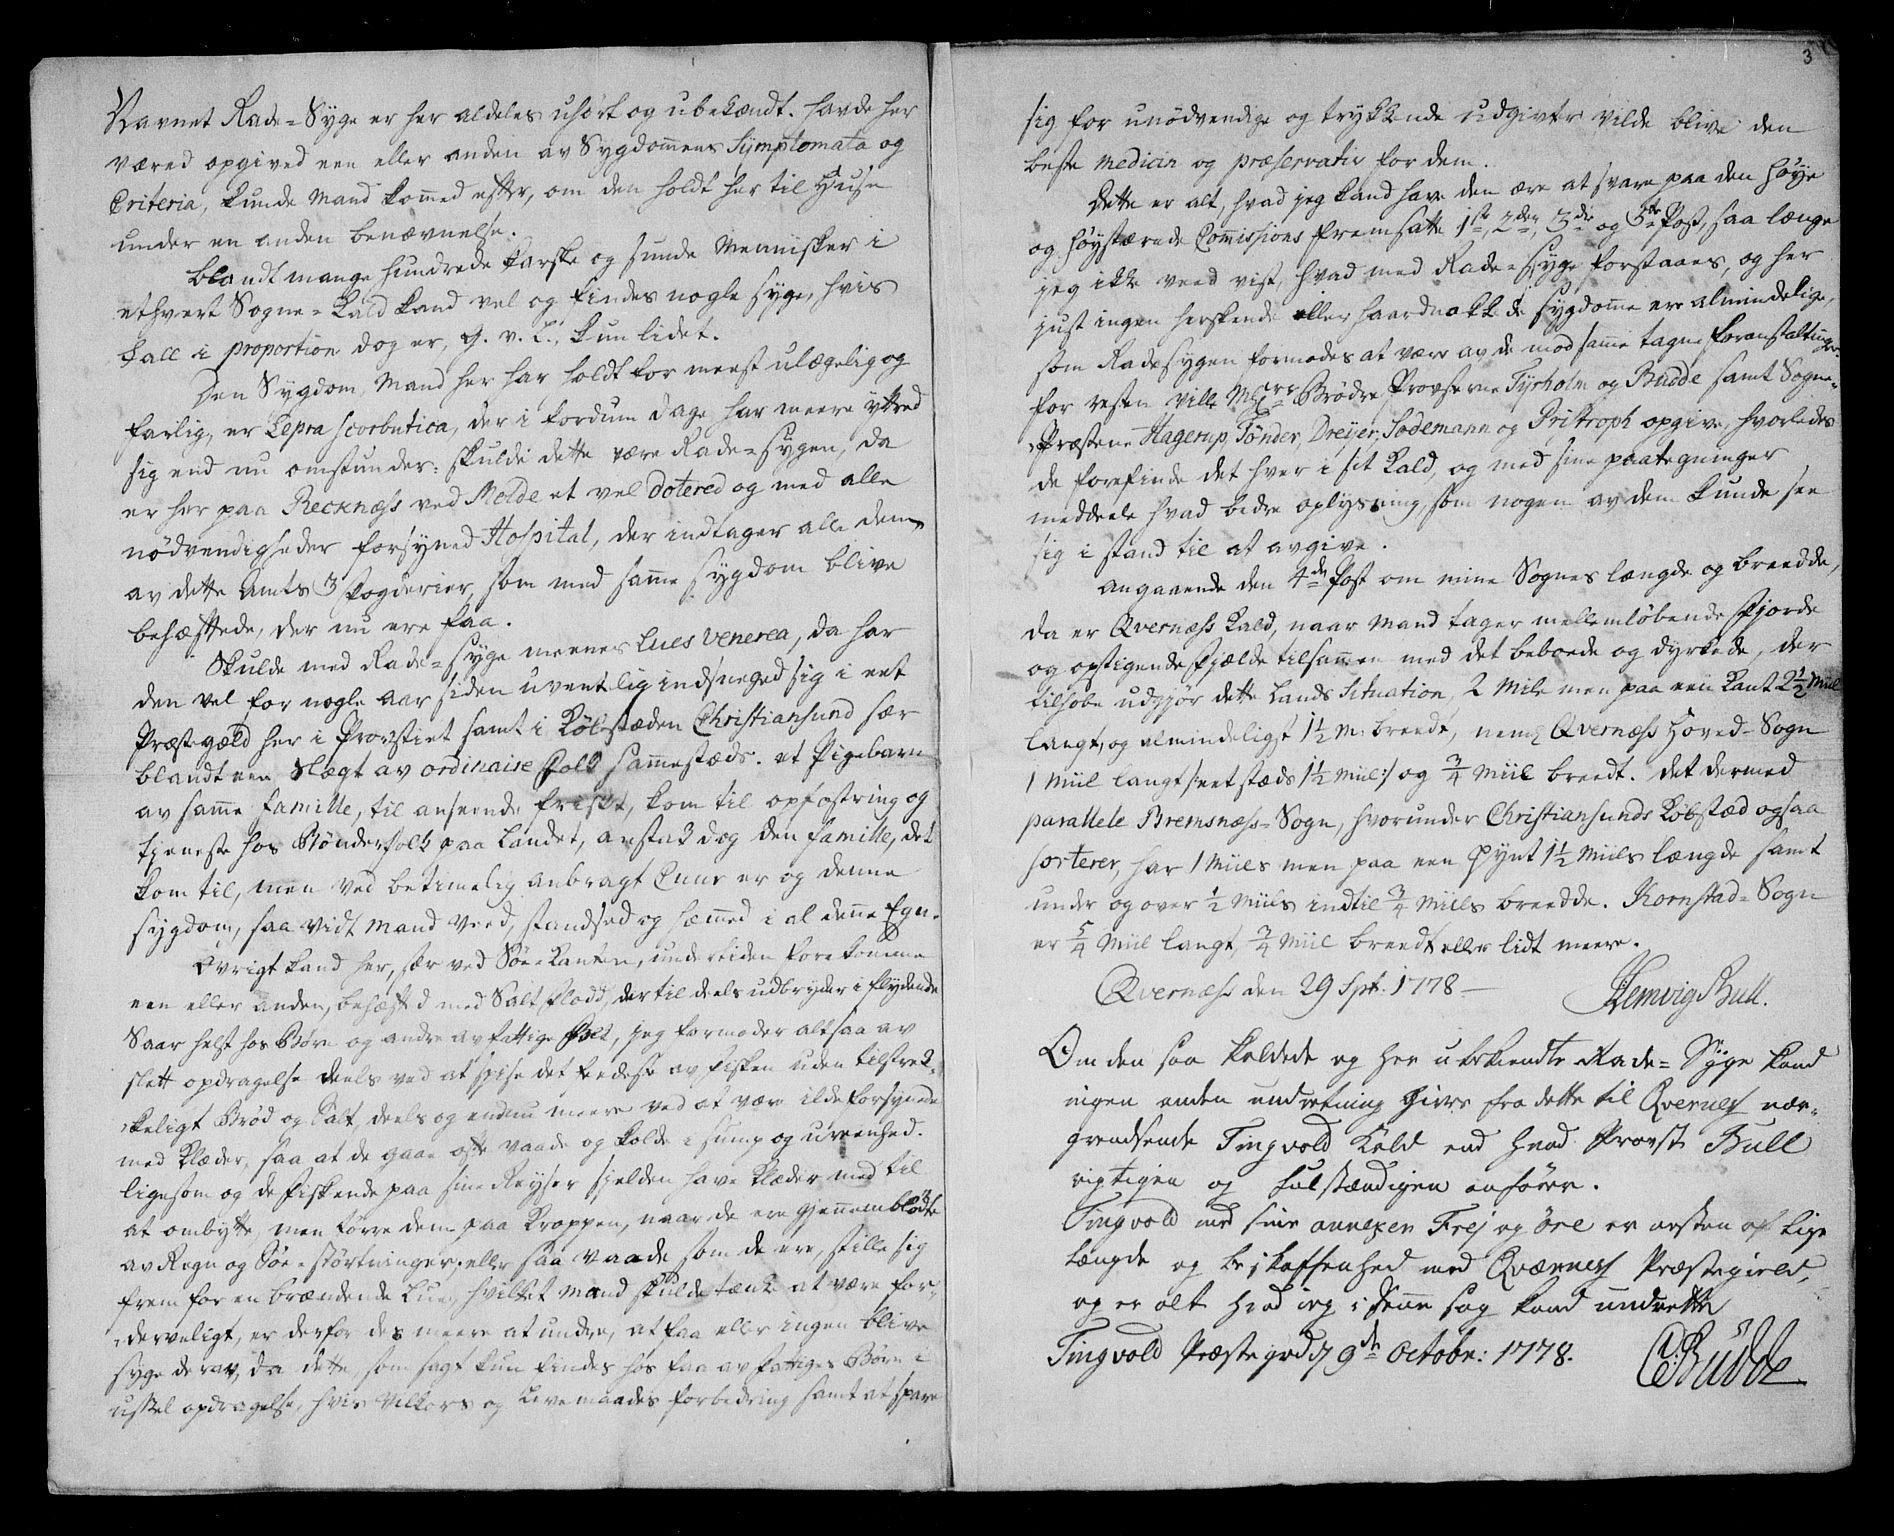 Navnet Rade-Syge er her aldeles uhørt og ubekændt. havde her
væred opgived een eller anden av Sygdommens Symptomata og
Criteria, kunde Mand kommed efter, om den holdt her til Huse
under en anden benævnelse.
blandt mange hundrede karske og sunde Mennisker i
ethvert Sogne-Kald kand vel og findes nogle syge, hvis
tall i proportion dog er, g. v. l., kun lidet.
Den Sygdom, Mand her har holdt for meest ulægelig og
farlig, er Lepra scorbutica, der i fordum dage har meere yttred
sig end nu omstunder: skulde dette være Rade-sygen, da
er her paa Recknæss ved Molde et vel doteret og med alle
nödvendigheder forsyned Hospital, der indtager alle dem,
av dette Amts 3 fogderier, som med samme sygdom blive
behæftede, der nu ere faa.
Skulde med Rade-syge meenes Lues venerea, da har
den vel for nogle aar siden uventelig indsneged sig i eet
Præstegæld her i Provstiet samt i Kiöbstæden Christiansund sær
blandt een Slægt av ordinaire Folk sammestæds. et Pigebarn
av samme famille, til anseende friskt, kom til opfostring og
tjeneste hos Bönderfolk paa Landet, anstak dog den famille, det
kom til, men ved betimelig anbragt Cuur er og denne
sygdom, saa vidt Mand veed, standsed og hæmmed i al denne Egn.
Övrigt kand her, sær ved Söe-Kanten, undertiden forekomme
een eller anden, behæfted med Salt flodd, der til deels udbryder i flydende
Saar helst hos Börn og andre av fattige folk, jeg formoder altsaa av
slett opdragelse deels ved at spise det feedeste av fisken uden tilstræk-
keligt Bröd og Salt, deels og endnu meere ved at være ilde forsynede
med Klæder, saa at de gaae ofte vaade og kolde i sump og ureenhed.
ligesom og de fiskende paa sine Reyser sjelden have Klæder med til
at ombytte, men törre dem paa Kroppen, naar de ere gjennemblödte
av Regn og Söe-störtninger, eller saa vaade som de ere, stille sig
frem for en brændende Lue, hvilket Mand skulde tænke at være for-
dærveligt, er derfor des meere at undre, at faa eller ingen blive
syge derav, da dette som sagt kun findes hos faa av fattiges Börn i
ussel opdragelse, hvis Vilkors og Levemaades forbedring samt at spare
3
sig for unödvendige og trykkende udgivter vilde blive den
beste medicin og præservativ for dem.
Dette er alt, hvad jeg kand have den ære at svare paa den höye
og höystærede Comissions fremsatte 1ste, 2den, 3die og 5te Post, saa længe
jeg ikke veed vist, hvad med Rade-syge forstaaes, og her
just ingen herskende eller haardnakkede sygdomme ere almindelige,
som Radesygen formodes at være av de mod samme tagne foranstaltninger.
for resten ville Brödre Provsterne Tyrholm og Budde samt Sogne-
Præstene Hagerup, Tönder, Dreyer, Sodemann og Pristroph opgive, hvorledes
de forefinde det hver i sit Kald, og med sine paategninger
meddeele hvad bedre oplysning, som nogen av dem kunde see
sig i stand til at avgive.
Angaaende den 4de Post om mine Sognes længde og breedde,
da er Qvernæss Kald, naar Mand tager mellemlöbende Fjorde
og opstigende Fjælde tilsammen med det beboede og dyrkede, der
tilhobe udgjör dette Lands Situation, 2 Mile men paa een Kant 2½ Miil
langt, og almindeligst 1½ M. breedt, neml. Qvernæss Hoved-Sogn
1 Miil langt /: eet stæds 1½ Miil :/ og ¾ Miil breedt. det dermed
parallele Bremsnæss-Sogn, hvorunder Christiansunds Kiöbstæd ogsaa
sorterer, har 1 Miils men paa een Pynt 1½ Miils længde samt
under og over ½ Miils indtil ¾ Miils breedde. Kornstad-Sogn
er 5/4 Miil langt, ¾ Miil breedt eller lidt meere.
Qvernæss den 29 Spt: 1778. Hemvig Bull.
Om den saa kaldede og her ubekiendte Rade-Syge kand
ingen anden underretning gives fra dette til Qvernes nær-
grendsende Tingvold Kald end hvad Provst Bull
rigtigen og fulstændigen anfører.
Tingvold med sine annexer Frej og Øre er næsten af lige
længde og beskaffenhed med Qværnes Præstegield,
og er alt hvad jeg i denne sag kand underrette
Tingvold Præstegrd d. 9de Octobr: 1778. Budde